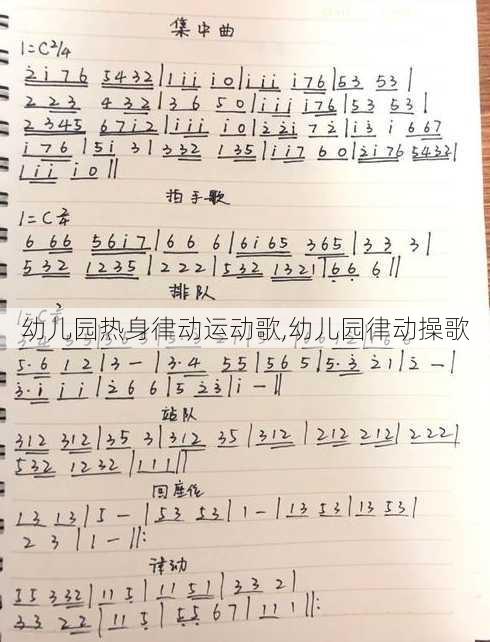 集中曲
1=C 2/4
2̇1̇76 5432|1i̇i̇ i̇0|i̇i̇i̇ i̇76|53 53|
223 432|36 50|i̇i̇i̇ i̇76|53 53|
2345 67i̇2̇|i̇i̇i̇ i̇0|2̇2̇i̇ 72̇|i̇3̇ i̇ 667
i̇76|5i̇ 3|332 135|i̇i̇7 60|2̇i̇76 5432|
1i̇i̇ i̇0‖
拍手歌
1=C 2/4
6 66 56i̇7|66 6|6i̇65 365|33 3|
532 1235|222|532 1321|6̣6̣ 6‖
排队
幼儿园热身律动运动歌,幼儿园律动操歌
5·6 12|3 —|3·4 55|56 5|5·3̇ 2̇1|2̇ —|
3̇·i̇ i̇ i̇|2̇66|5 2̇3̇|i̇ —‖
站队
312 312|35 3|312 35|312|212 212|222|
532 1232|111‖
回座位
13 13|5 —|53 53|1 —|13 53|13 53|
2 3|1 —‖:
律动
55 332|11 5̣|11 51|33 2|
33 22|11 5̣|5̣5̣ 67|11 1‖: